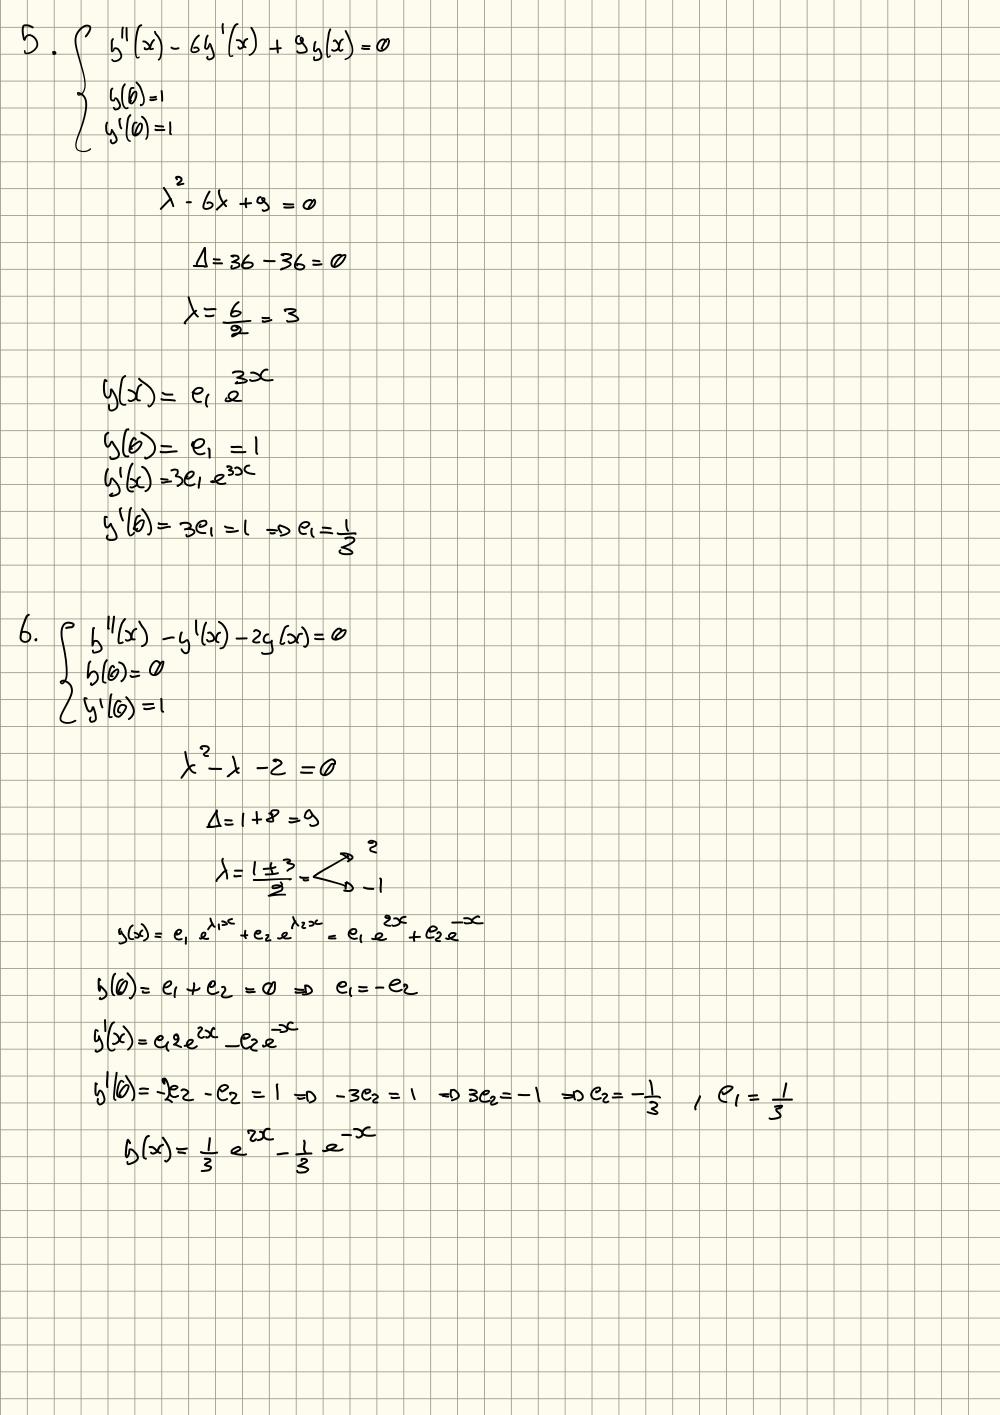 5. { y''(x) - 6y'(x) + 9y(x) = 0
y(0) = 1
y'(0) = 1
λ² - 6λ + 9 = 0
Δ = 36 - 36 = 0
λ = 6/2 = 3
y(x) = c₁ e^{3x}
y(0) = c₁ = 1
y'(x) = 3c₁ e^{3x}
y'(0) = 3c₁ = 1 ⇒ c₁ = 1/3
6. { y''(x) - y'(x) - 2y(x) = 0
y(0) = 0
y'(0) = 1
λ² - λ - 2 = 0
Δ = 1 + 8 = 9
λ = (1 ± 3)/2 = 2, -1
y(x) = c₁ e^{λ₁x} + c₂ e^{λ₂x} = c₁ e^{2x} + c₂ e^{-x}
y(0) = c₁ + c₂ = 0 ⇒ c₁ = -c₂
y'(x) = c₁ 2 e^{2x} - c₂ e^{-x}
y'(0) = -2c₂ - c₂ = 1 ⇒ -3c₂ = 1 ⇒ 3c₂ = -1 ⇒ c₂ = -1/3 , c₁ = 1/3
y(x) = 1/3 e^{2x} - 1/3 e^{-x}